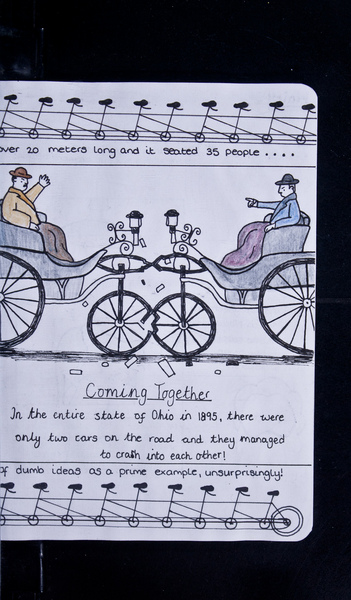 over 20 meters long and it seated 35 people....
Coming Together
In the entire state of Ohio in 1895, there were
only two cars on the road and they managed
to crash into each other!
of dumb ideas as a prime example, unsurprisingly!